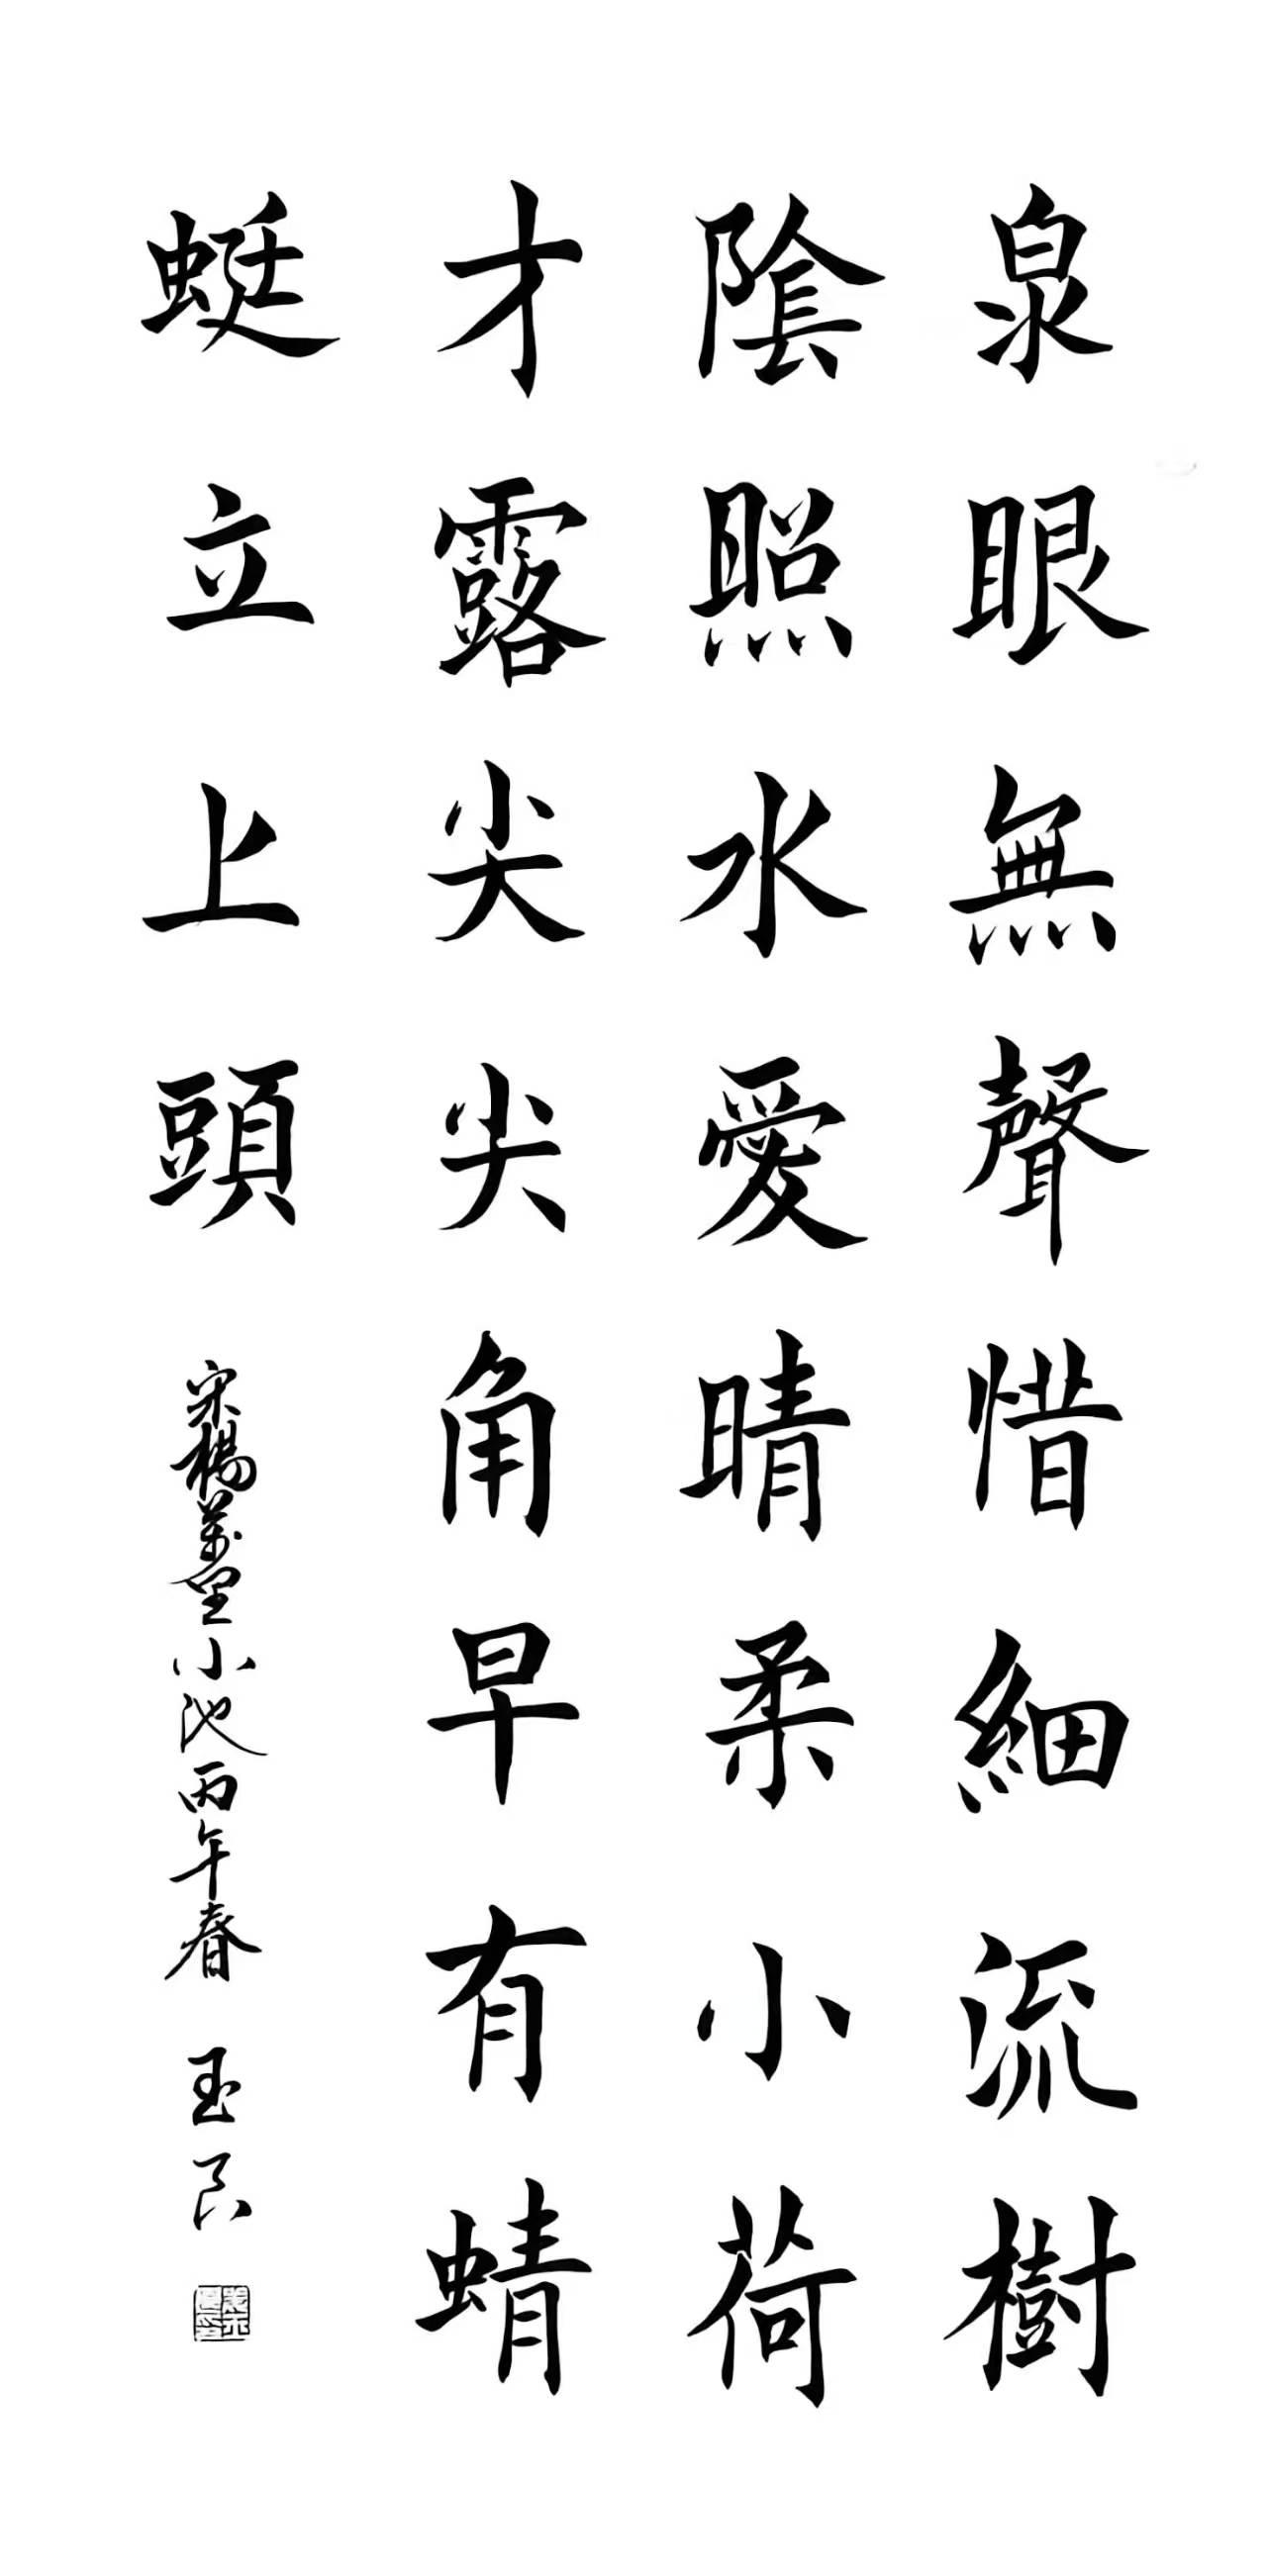 泉眼無聲惜細流樹
陰照水愛晴柔小荷
才露尖尖角早有蜻
蜓立上頭
宋楊萬里小池丙午春 玉